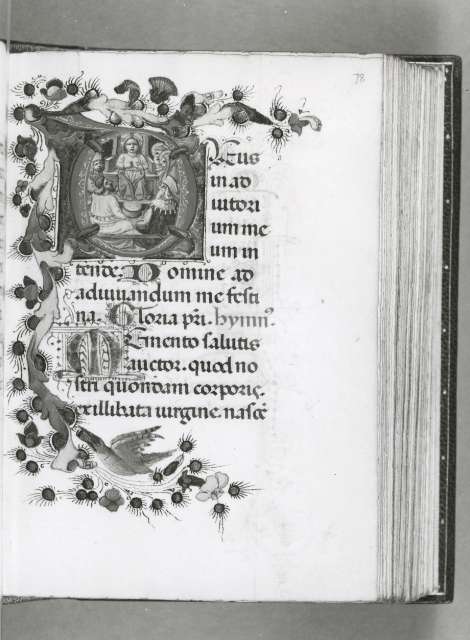 DEus
in ad
iutori
um me
um in
tende. Domine ad
adiuuandum me festi
na. Gloria p̄ri. hymnꝰ.
MEmento salutis
auctor. quod no
stri quondam corporis.
ex illibata uirgine nascē